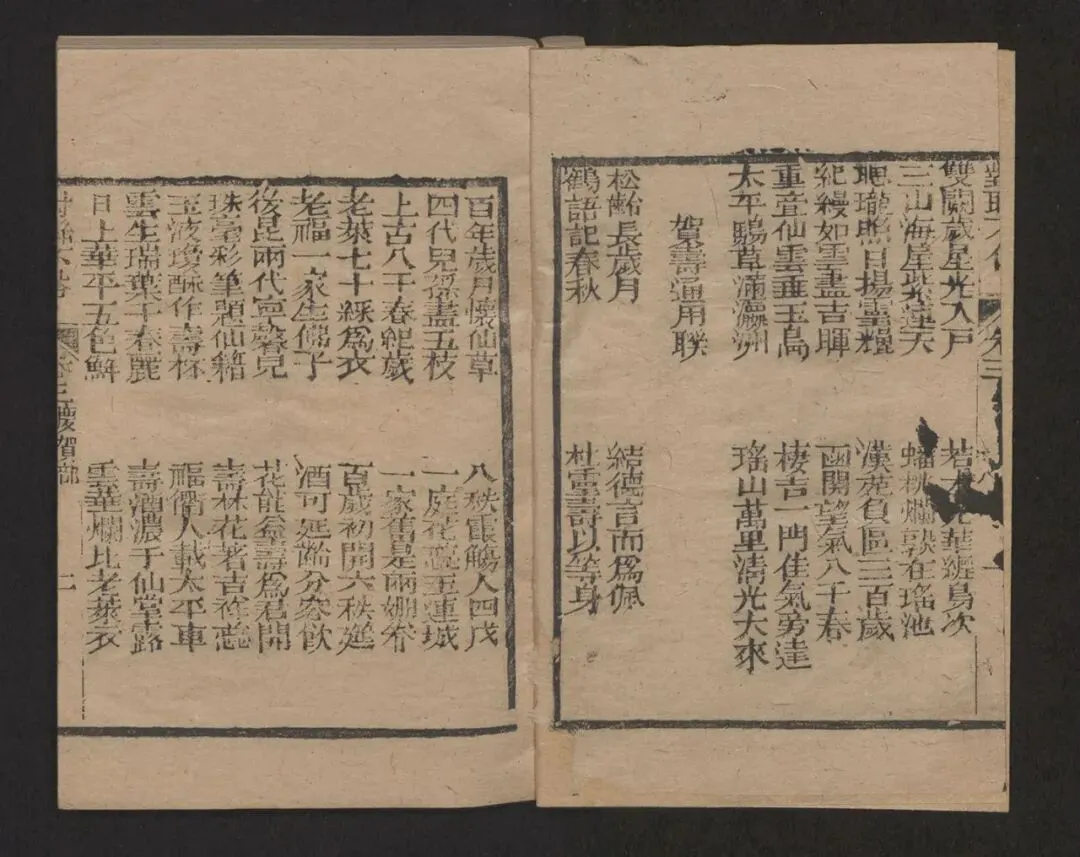 雙闕歲星光入戶 若 光華纏島次
三山海屋 連天 蟠桃爛熟在瑤池
照日揚靈耀 漢苑負區三百歲
縵如雲盡吉暉 函開望氣八千春
重疊仙雲垂玉島 棲吉一門佳氣旁達
太平 草滿瀛洲 瑤山萬里清光大來
賀壽通用聯
松齡長歲月 結德言而爲佩
鶴語記春秋 杜靈壽以等身
百年歲月懷仙草 八秩霞觴人四戊
四代兒孫盡五枝 一庭花蕊玉連城
上古八千春紀歲 一家舊是兩姻眷
老萊七十綵爲衣 百歲初開六秩筵
老福一家生佛子 酒可延齡分客飲
後昆兩代寧馨兒 花能益壽爲君開
珠毫彩筆題仙籍 壽林花著吉祥蕊
玉液瓊酥作壽杯 福衢人載太平車
雲生瑞葉千春麗 壽酒濃于仙掌露
日上華平五色鮮 雲華爛比老萊衣
慶賀部 二